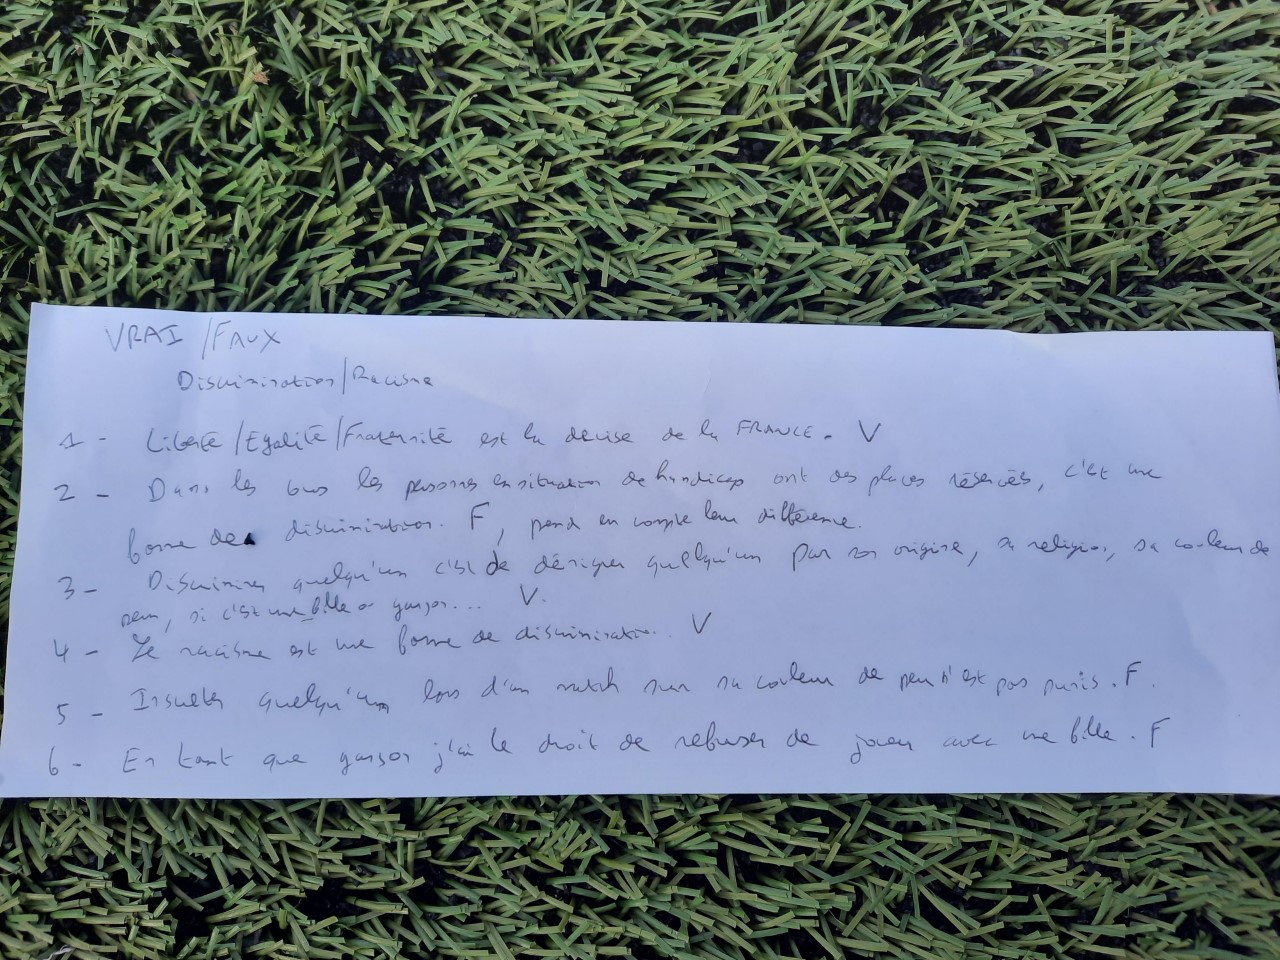 VRAI / FAUX
Discrimination / Racisme
1 - Liberté / Egalité / Fraternité est la devise de la FRANCE. V
2 - Dans les bus les personnes en situation de handicap ont des places réservés, c'est une
forme de discrimination. F, prend en compte leur différence.
3 - Discriminer quelqu'un c'est de désigner quelqu'un par son origine, sa religion, sa couleur de
peau, si c'est une fille ou garçon... V.
4 - Le racisme est une forme de discrimination. V
5 - Insulter quelqu'un lors d'un match sur sa couleur de peau n'est pas punis. F.
6 - En tant que garçon j'ai le droit de refuser de jouer avec une fille. F